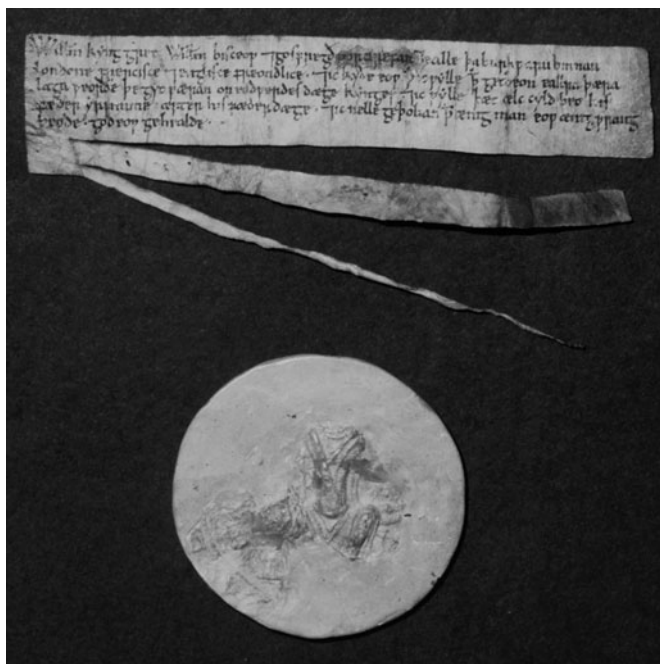 Willm kyng gret Willm bisceop ⁊ gosfregð portirefan ⁊ ealle þa burhwaru binnan
londone frencisce ⁊ englisce freondlice · ⁊ ic kyðe eow þ ic wylle þ get beon eallra þæra
laga weorðe þe gyt wæran on eadwerdes dæge kynges · ⁊ ic wylle þæt ælc cyld beo his
fæder yrfnume · æfter his fæder dæge · ⁊ ic nelle geþolian þ ænig man eow ænig wrang
beode · god eow gehealde ·